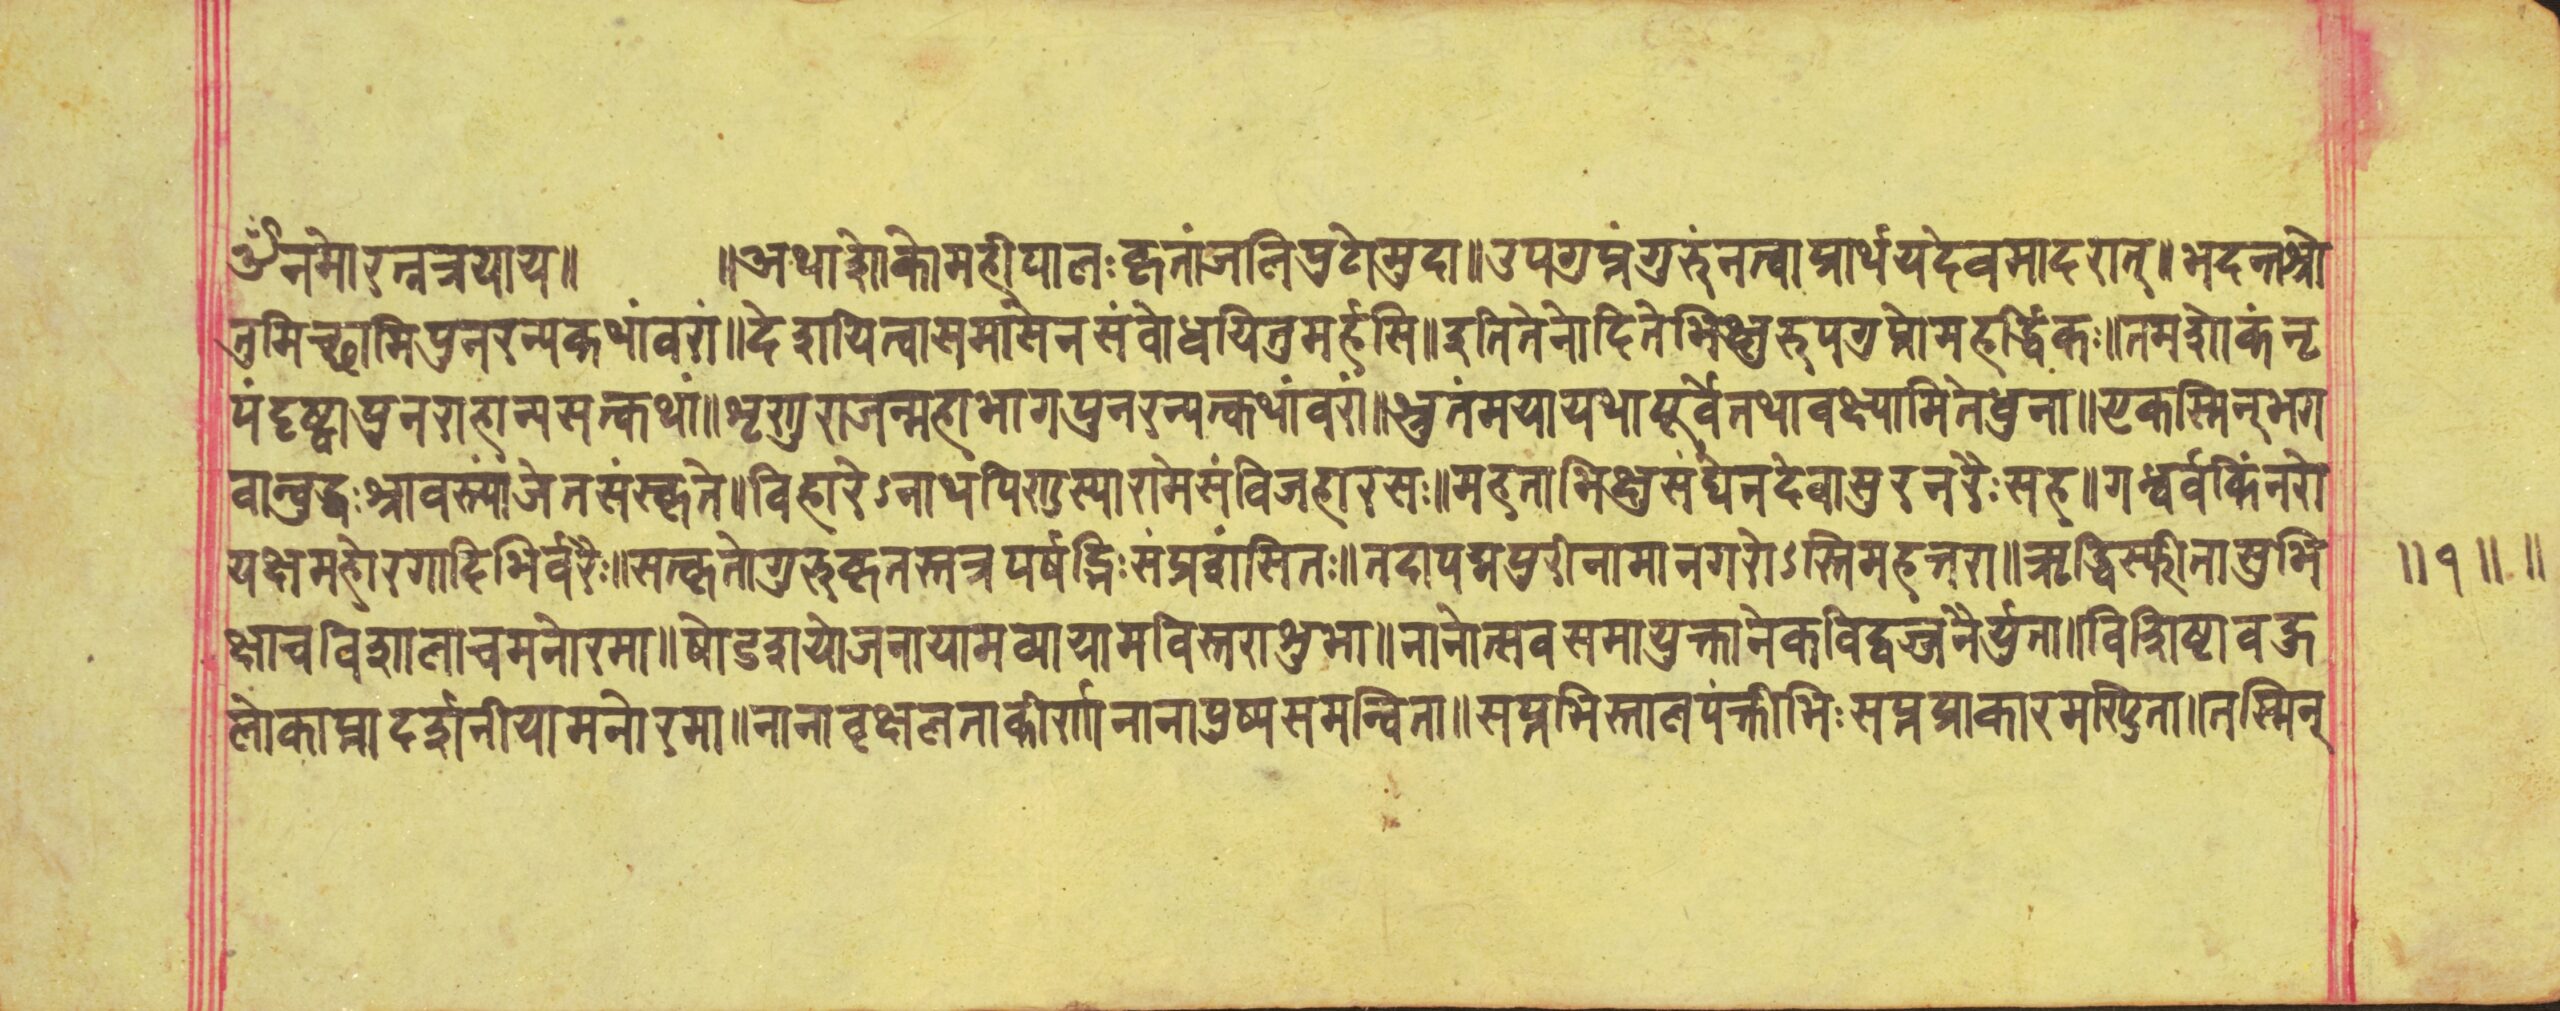 ॐ नमो रत्नत्रयाय॥ ॥अथाशोको महीपालः कृतांजलिपुटो मुदा॥उपगुप्तं गुरुं नत्वा प्रार्थयदेवमादरात्॥भदन्त श्रो
तुमिच्छामि पुनरन्यकथां वरां॥देशयित्वा समासेन संबोधयितुमर्हसि॥इति तेनोदिते भिक्षुरुपगुप्तो महर्द्धिकः॥तमशोकं नृ
पं दृष्ट्वा पुनराहान्यसत्कथां॥शृणु राजन्महाभाग पुनरन्यत्कथां वरां॥श्रुतं मया यथा पूर्वं तथा वक्ष्यामि तेधुना॥एकस्मिन् भग
वान्बुद्धः श्रावस्त्यां जेतसंस्कृते॥विहारेऽनाथपिण्डस्यारामे संविजहार सः॥महता भिक्षुसंघेन देवासुरनरैः सह॥गन्धर्वकिंनरो
यक्षमहोरगादिभिर्वरैः॥सत्कृतो गुरुकृतस्तत्र पर्षद्भिः संप्रशंसितः॥तदा पद्मपुरी नामा नगरोऽस्ति महत्तरा॥ऋद्धिस्फीता सुभि
क्षा च विशाला च मनोरमा॥षोडशयोजनायामव्यायामविस्तरा शुभा॥नानोत्सवसमायुक्तानेकविद्वज्जनैर्युता॥विशिष्टा वहु
लोका प्रासादर्शनीया मनोरमा॥नानावृक्षलताकीर्णा नानापुष्पसमन्विता॥सप्तभिस्तालपंक्तीभिः सप्तप्राकारमण्डिता॥तस्मिन्
॥१॥ ॥